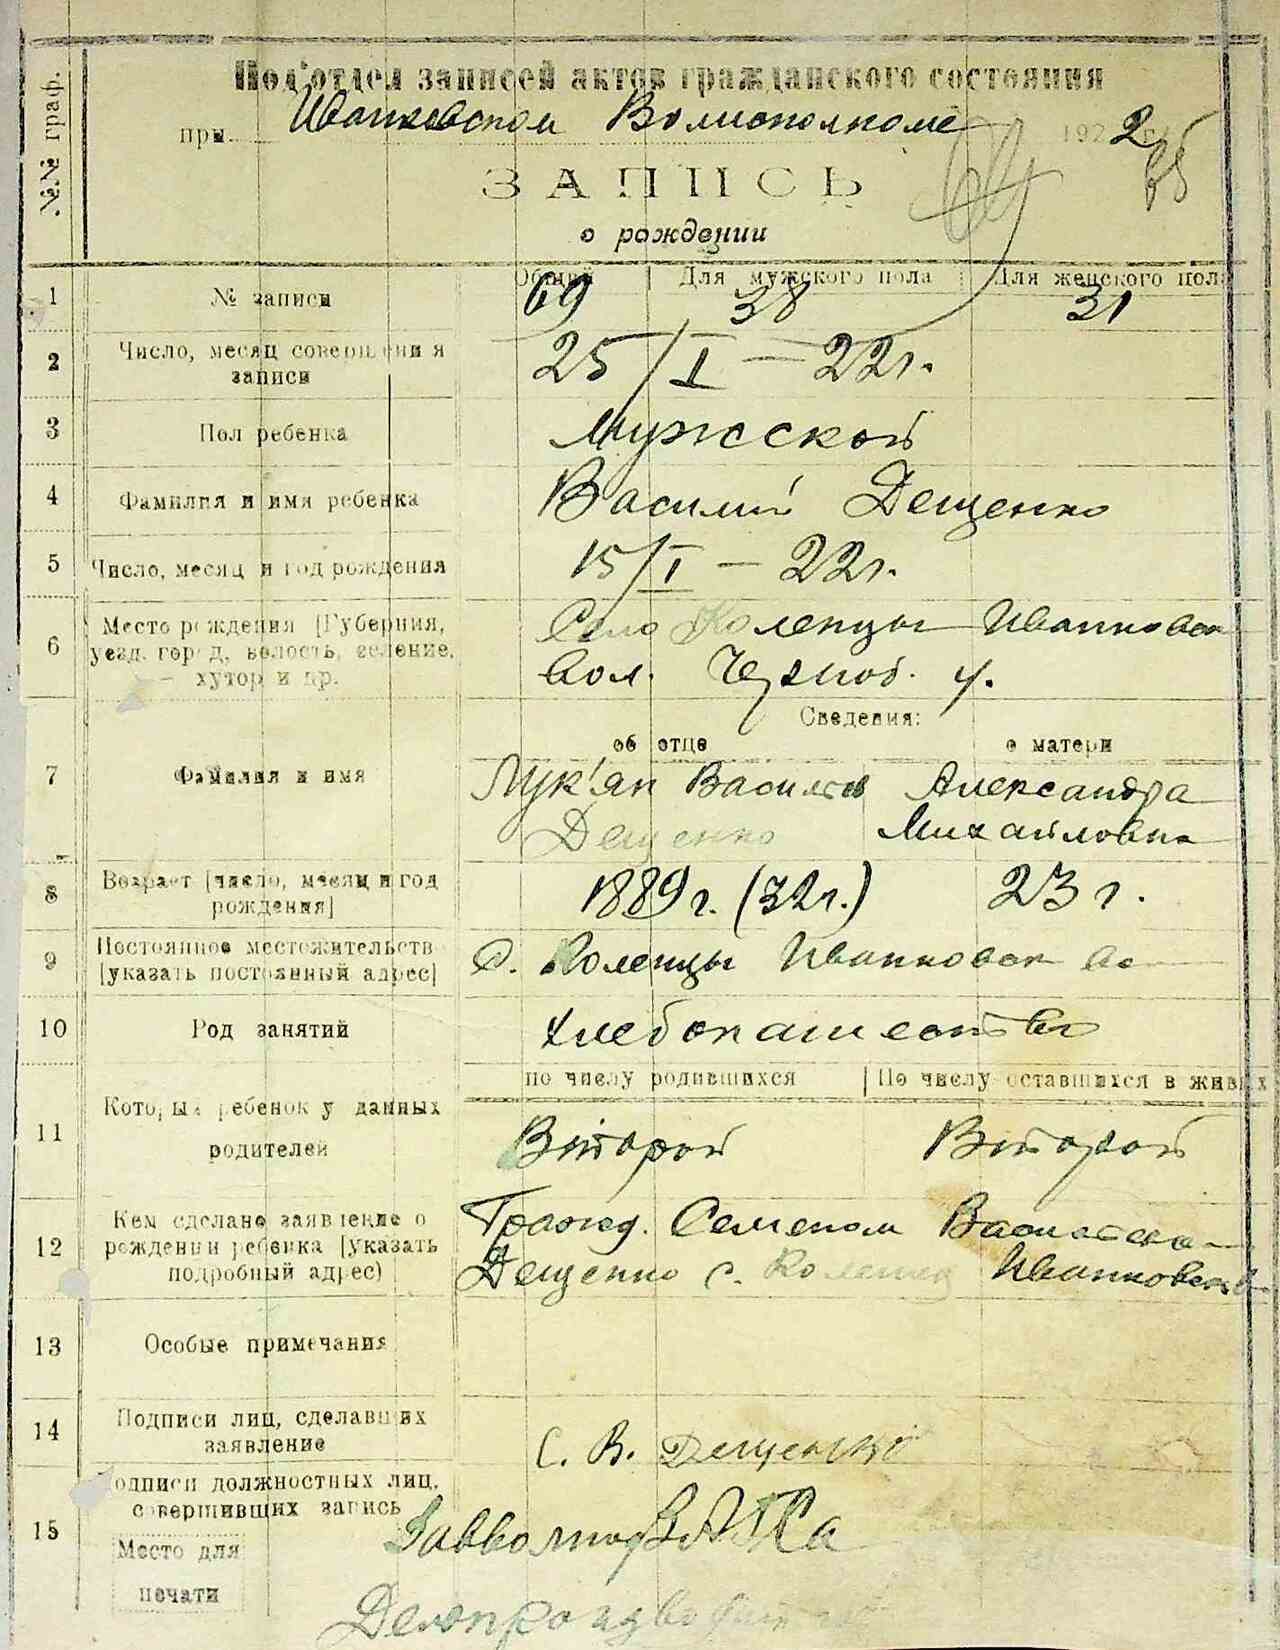 №№ граф.
Под'отдел записей актов гражданского состояния
при Иванковском Волисполкоме 1922 г.
ЗАПИСЬ
о рождении
Общий Для мужского пола Для женского пола
1 № записи 69 38 31
2 Число, месяц совершения
записи 25/I — 22 г.
3 Пол ребенка Мужской
4 Фамилия и имя ребенка Василий Дещенко
5 Число, месяц и год рождения 15/I — 22 г.
6 Место рождения [Губерния,
уезд, город, волость, селение,
хутор и др.
Село Коленцы Иванковск
вол. Черноб. у.
Сведения:
об отце о матери
7 Фамилия и имя
Лук'ян Васильев Александра
Дещенко Михайловна
8 Возраст [число, месяц и год
рождения]
1889 г. (32 г.) 23 г.
9 Постоянное местожительств
[указать постоянный адрес]
с. Коленцы Иванковск во
10 Род занятий Хлебопашество
по числу родившихся По числу оставшихся в живых
11 Который ребенок у данных
родителей
Второй Второй
12 Кем сделано заявление о
рождении ребенка [указать
подробный адрес)
Гражд. Семеном
Дещенко с. Коленец Иванковск в
13 Особые примечания
14 Подписи лиц, сделавших
заявление
С. В. Дещенко
15 одписи должностных лиц,
совершивших запись
Место для
печати
Делопроизводитель